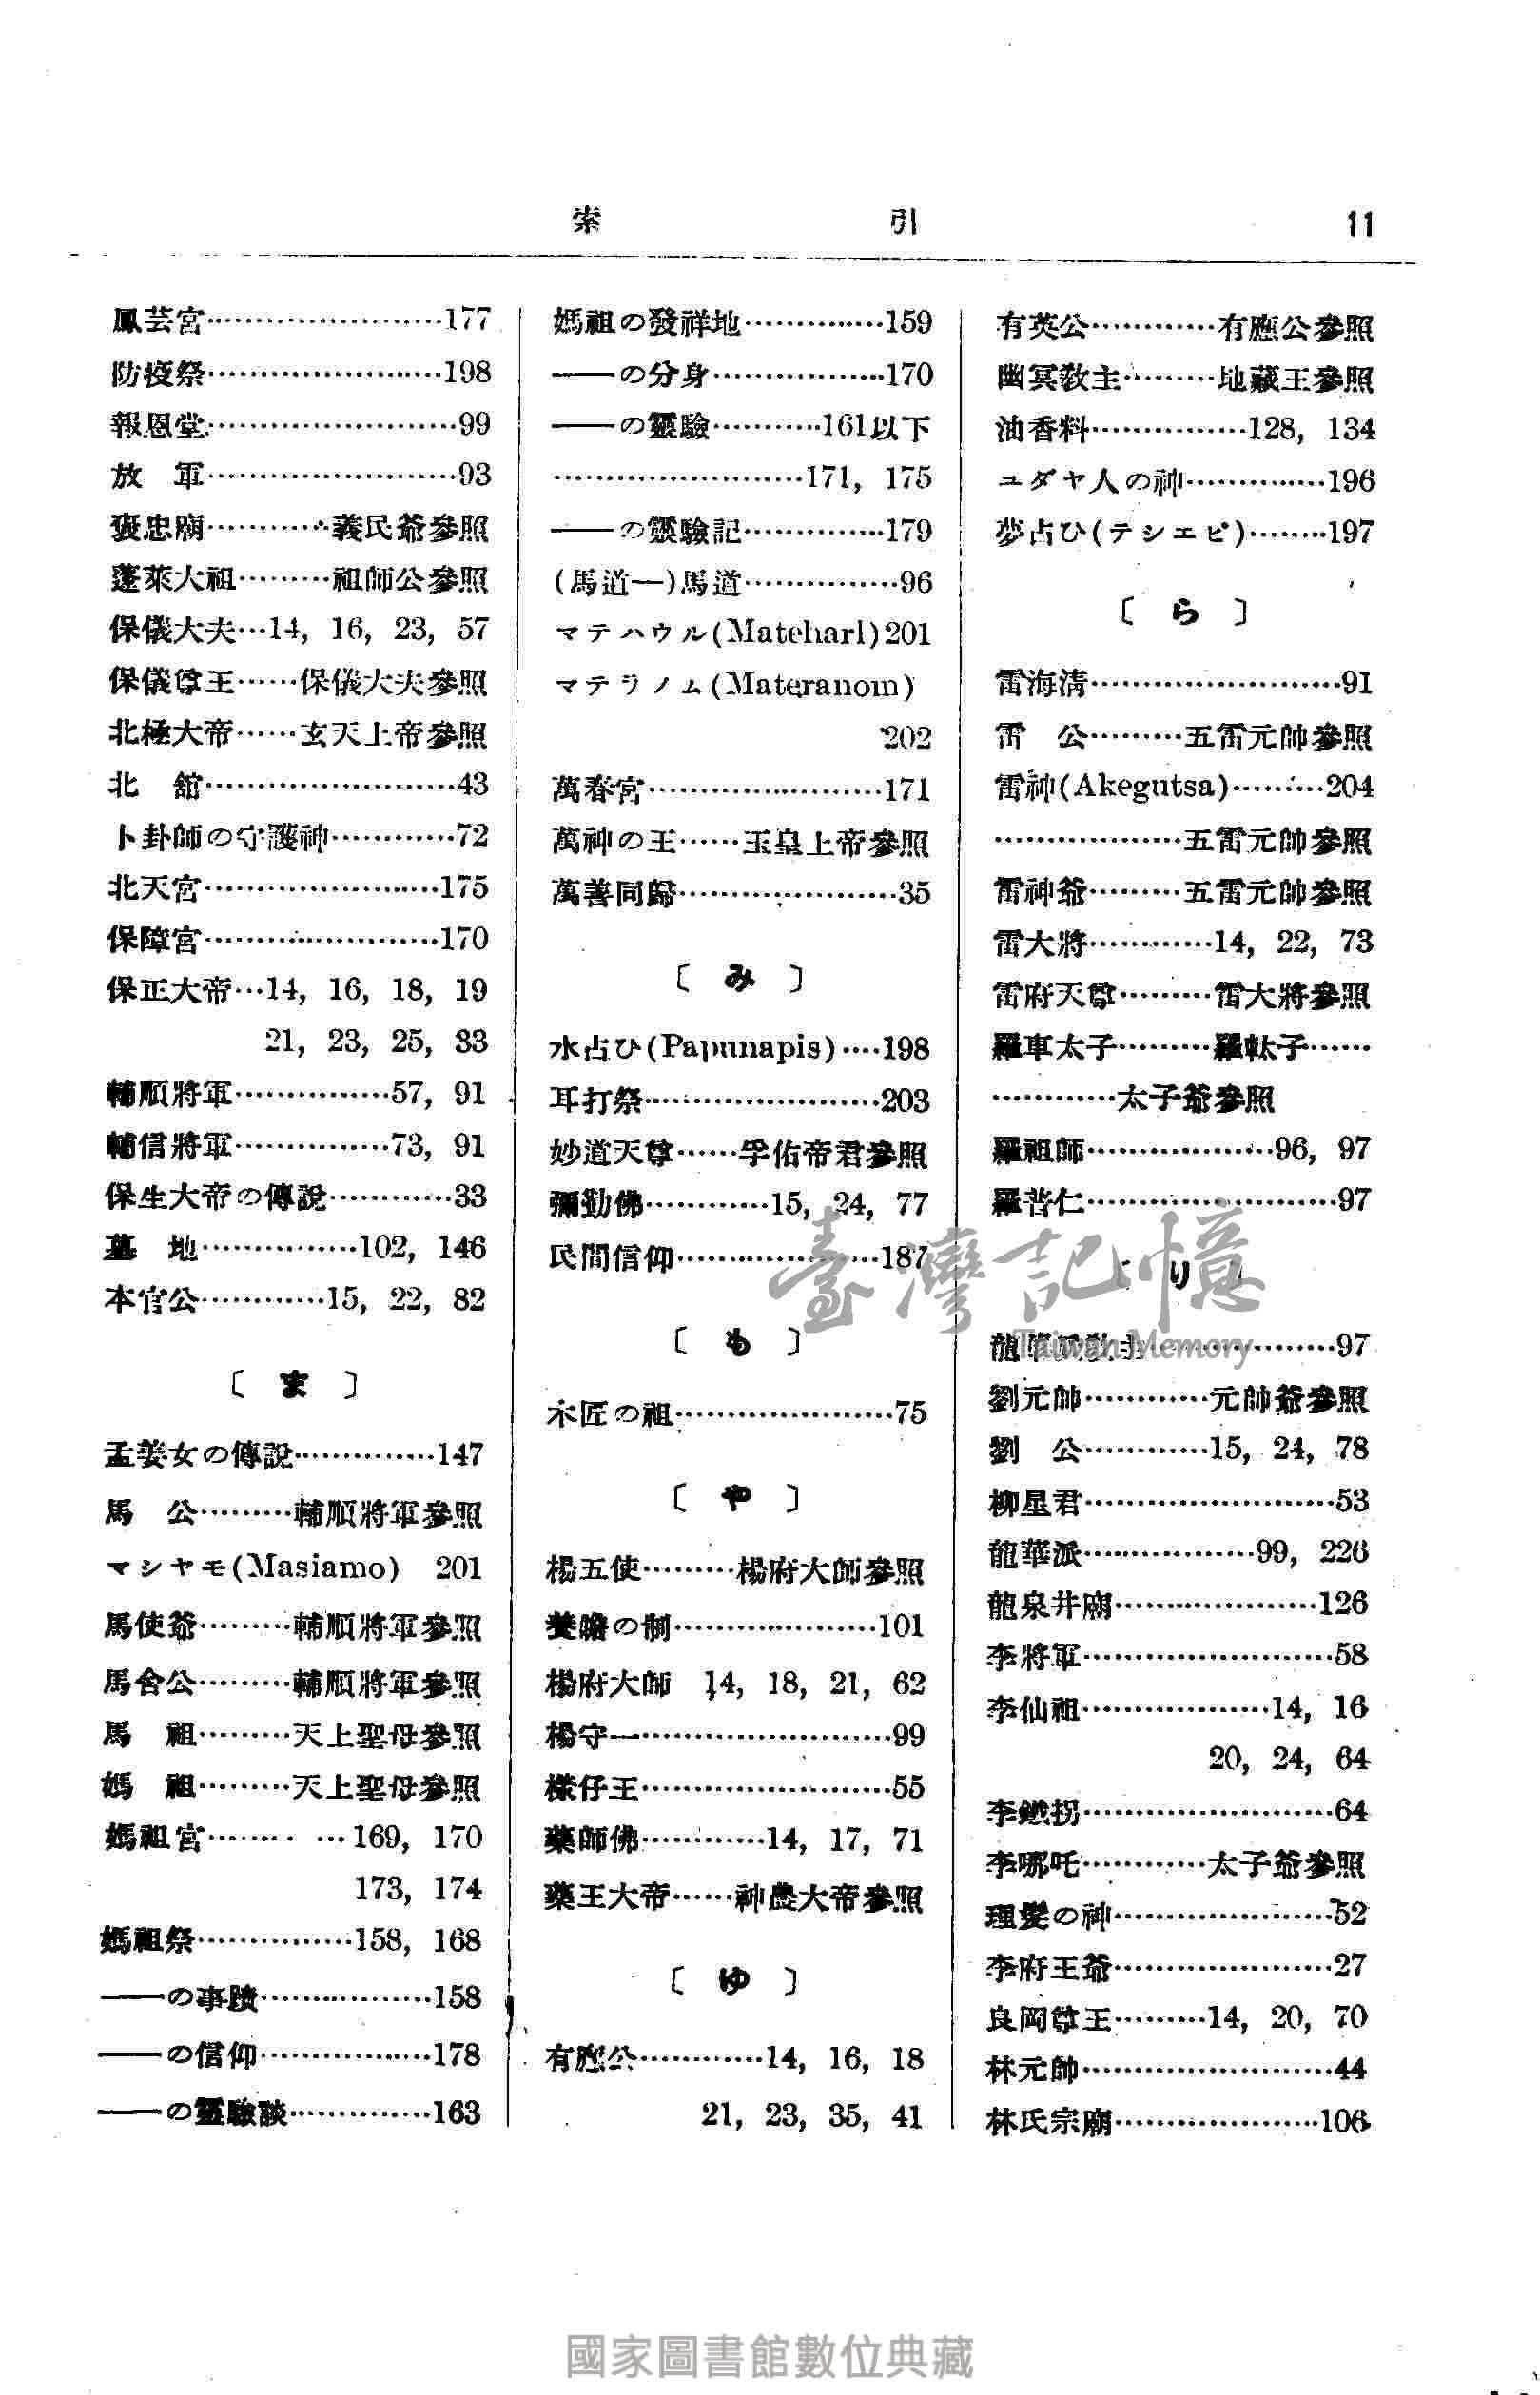 索引 11
鳳芸宮……………………177
防疫祭……………………198
報恩堂……………………99
放 軍……………………93
褒忠廟…………義民爺參照
蓬萊大祖………祖師公參照
保儀大夫…14, 16, 23, 57
保儀尊王……保儀大夫參照
北極大帝……玄天上帝參照
北 館……………………43
卜卦師の守護神…………72
北天宮……………………175
保障宮……………………170
保正大帝…14, 16, 18, 19
21, 23, 25, 33
輔順將軍……………57, 91
輔信將軍……………73, 91
保生大帝の傳說…………33
墓 地……………102, 146
本官公…………15, 22, 82
〔ま〕
孟姜女の傳說……………147
馬 公………輔順將軍參照
マシヤモ(Masiamo) 201
馬使爺………輔順將軍參照
馬舍公………輔順將軍參照
馬 祖………天上聖母參照
媽 祖………天上聖母參照
媽祖宮…………169, 170
173, 174
媽祖祭……………158, 168
――の事蹟………………158
――の信仰………………178
――の靈驗談……………163
媽祖の發祥地……………159
――の分身………………170
――の靈驗…………161以下
……………………171, 175
――の靈驗記……………179
(馬道一)馬道……………96
マテハウル(Mateharl)201
マテラノム(Materanom)
202
萬春宮……………………171
萬神の王……玉皇上帝參照
萬善同歸…………………35
〔み〕
水占ひ(Papunapis)……198
耳打祭……………………203
妙道天尊……孚佑帝君參照
彌勒佛…………15, 24, 77
民間信仰…………………187
〔も〕
木匠の祖…………………75
〔や〕
楊五使………楊府大師參照
養贍の制…………………101
楊府大師 14, 18, 21, 62
楊守一……………………99
樣仔王……………………55
藥師佛…………14, 17, 71
藥王大帝……神農大帝參照
〔ゆ〕
有應公…………14, 16, 18
21, 23, 35, 41
有英公…………有應公參照
幽冥敎主………地藏王參照
油香料……………128, 134
ユダヤ人の神……………196
夢占ひ(テシエピ)………197
〔ら〕
雷海淸……………………91
雷 公………五雷元帥參照
雷神(Akegutsa)………204
………………五雷元帥參照
雷神爺………五雷元帥參照
雷大將…………14, 22, 73
雷府天尊………雷大將參照
羅車太子………羅軚子……
…………太子爺參照
羅祖師………………96, 97
羅普仁……………………97
〔り〕
龍華派敎主………………97
劉元帥…………元帥爺參照
劉 公…………15, 24, 78
柳星君……………………53
龍華派………………99, 226
龍泉井廟…………………126
李將軍……………………58
李仙祖………………14, 16
20, 24, 64
李鐵拐……………………64
李哪吒…………太子爺參照
理髮の神…………………52
李府王爺…………………27
良岡尊王………14, 20, 70
林元帥……………………44
林氏宗廟…………………106
臺灣記憶
Taiwan Memory
國家圖書館數位典藏